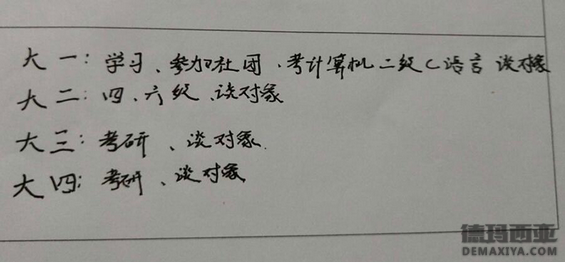 大一：学习、参加社团、考计算机二级C语言 谈对象
大二：四、六级、谈对象
大三：考研、谈对象.
大四：考研、谈对象
德玛西亚
DEMAXIYA.COM